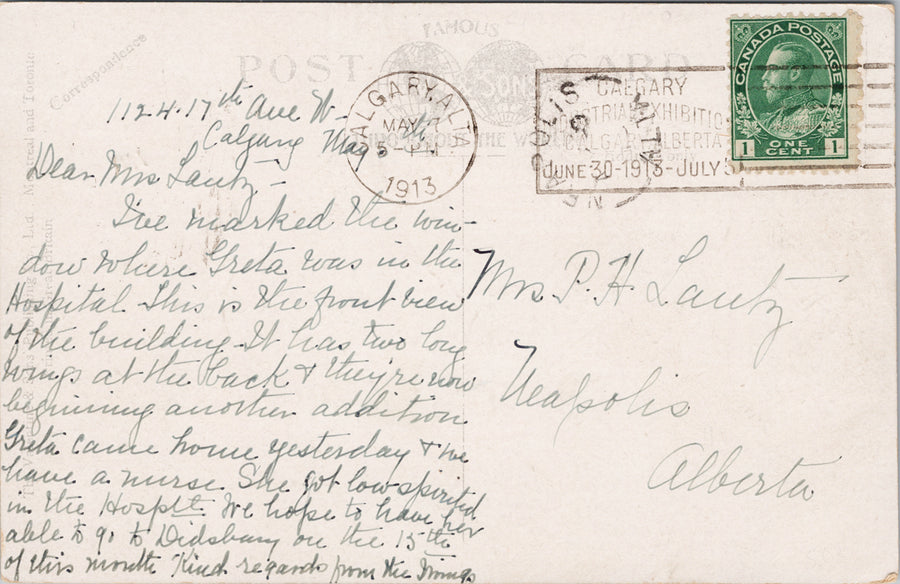 FAMOUS
POST CARD
Correspondence
1124.17th Ave W-
Calgary May
Dear Mrs Lantz -
I've marked the win-
dow where Greta was in the
Hospital. This is the front view
of the building. It has two long
wings at the back & they're now
beginning another addition
Greta came home yesterday & we
have a nurse. She got low spirited
in the Hosptl. We hope to have her
able to go to Didsbury on the 15th
of this month Kind regards from the Irvings
CALGARY, ALTA
MAY
5 PM
1913
CALGARY
INDUSTRIAL EXHIBITION
CALGARY ALBERTA
JUNE 30-1913-JULY 5
NEAPOLIS
ALTA
CANADA POSTAGE
1 ONE CENT 1
Mrs P. H. Lantz
Neapolis
Alberta
Montreal and Toronto